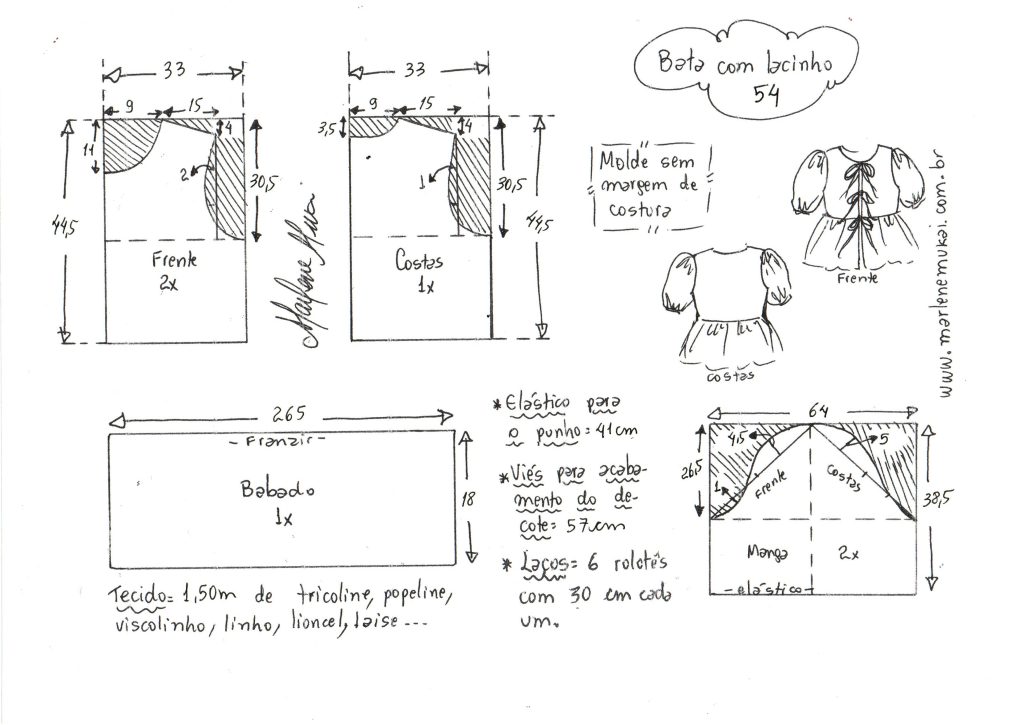 Bata com lacinho
54
33
9
15
4
11
2
44,5
30,5
Frente
2x
33
9
15
3,5
4
1
30,5
44,5
Costas
1x
Marlene Mukai
Molde sem
margem de
costura
Frente
costas
www.marlenemukai.com.br
265
- Franzir -
Babado
1x
18
Tecido= 1,50m de tricoline, popeline,
viscolinho, linho, lioncel, laise ...
*Elástico para
o punho=41cm
*Viés para acaba-
mento do de-
cote= 57cm
* Laços= 6 rolotês
com 30 cm cada
um.
64
4,5
5
26,5
38,5
1
Frente
Costas
Manga 2x
-elástico+